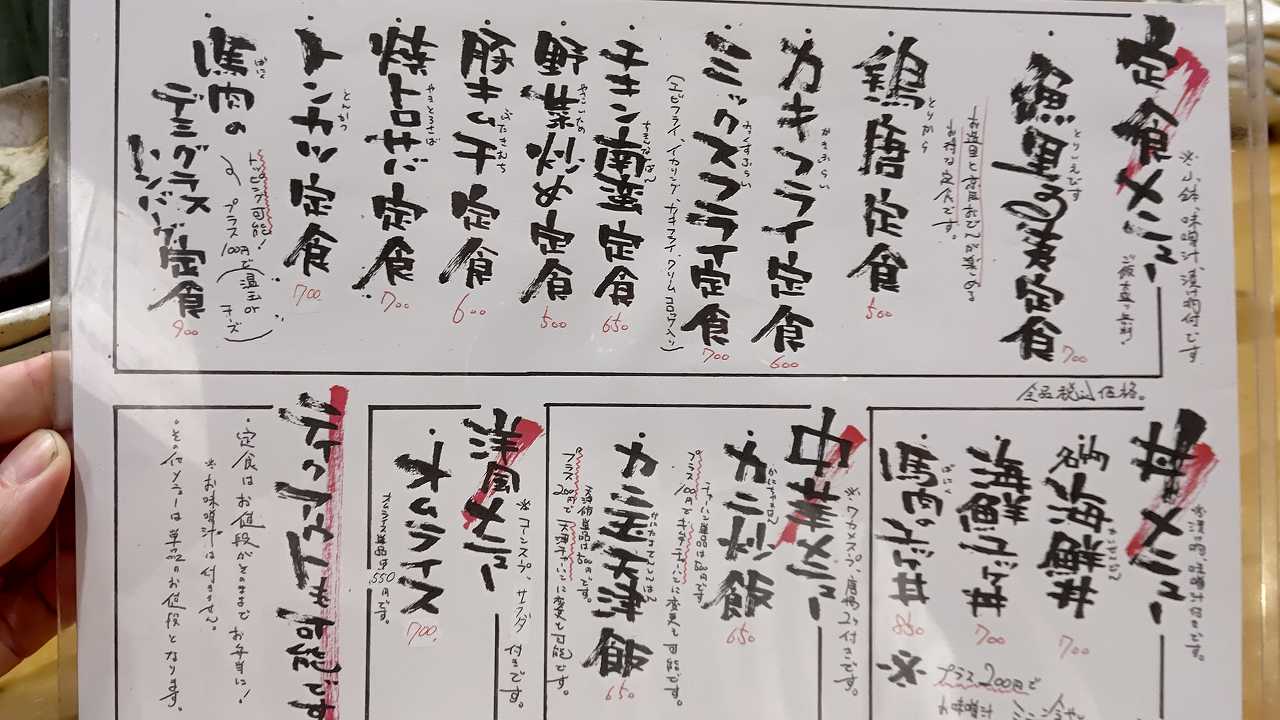 定食メニュー
※小鉢、味噌汁、漬け物付です。
ご飯大盛り無料!
・魚恵る寿定食
とりえびす
お造りとおばんざいを楽しめる
お得な定食です。
700
・鶏唐定食
とりから
500
・カキフライ定食
かきふらい
600
・ミックスフライ定食
みっくすふらい
(エビフライ、イカリング、カキフライ、クリームコロッケ入り)
700
・チキン南蛮定食
ちきんなんばん
650
・野菜炒め定食
やさいいため
500
・豚キムチ定食
ぶたきむち
600
・焼トロサバ定食
やきとろさば
700
・トンカツ定食
とんかつ
700
・馬肉の
ばにく
デミグラス
ハンバーグ定食
トッピング可能!
プラス100円で(温玉orチーズ)
900
全品税込価格。
丼メニュー
※漬け物、味噌汁付きです。
・海鮮丼
かいせんどん
700
・海鮮ユッケ丼
700
・馬肉のユッケ丼
ばにく
850
※プラス200円で
中華メニュー
※ワカメスープ、唐揚2ヶ付きです。
・カニ炒飯
かにちゃーはん
プラス100円でキムチチャーハンに変更も可能です。
650
・カニ玉天津飯
プラス200円で天津チャーハンに変更も可能です。
650
洋風メニュー
※コーンスープ、サラダ付きです。
・オムライス
オムライス単品は550円です。
700
テイクアウトも可能です
・定食はお値段がそのままでお弁当に!
※お味噌汁は付きません。
・その他メニューは単品のお値段となります。